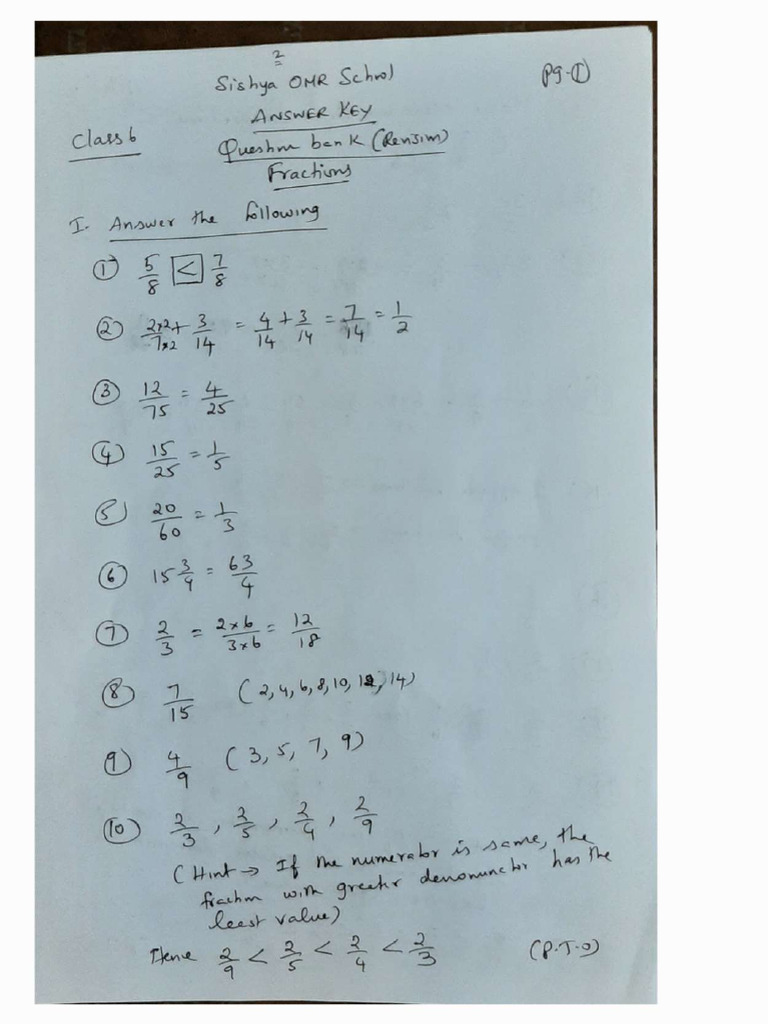 2
Sishya OMR School Pg-①
ANSWER KEY
Class 6 Question bank (Revision)
Fractions
I. Answer the following
① 5/8 < 7/8
② 2×2/7×2 + 3/14 = 4/14 + 3/14 = 7/14 = 1/2
③ 12/75 = 4/25
④ 15/25 = 1/5
⑤ 20/60 = 1/3
⑥ 15 3/4 = 63/4
⑦ 2/3 = 2×6/3×6 = 12/18
⑧ 7/15 (2,4,6,8,10,12,14)
⑨ 4/9 (3, 5, 7, 9)
⑩ 2/3, 2/5, 2/4, 2/9
(Hint → If the numerator is same, the
fraction with greater denominator has the
least value)
Hence 2/9 < 2/5 < 2/4 < 2/3 (P.T.O)